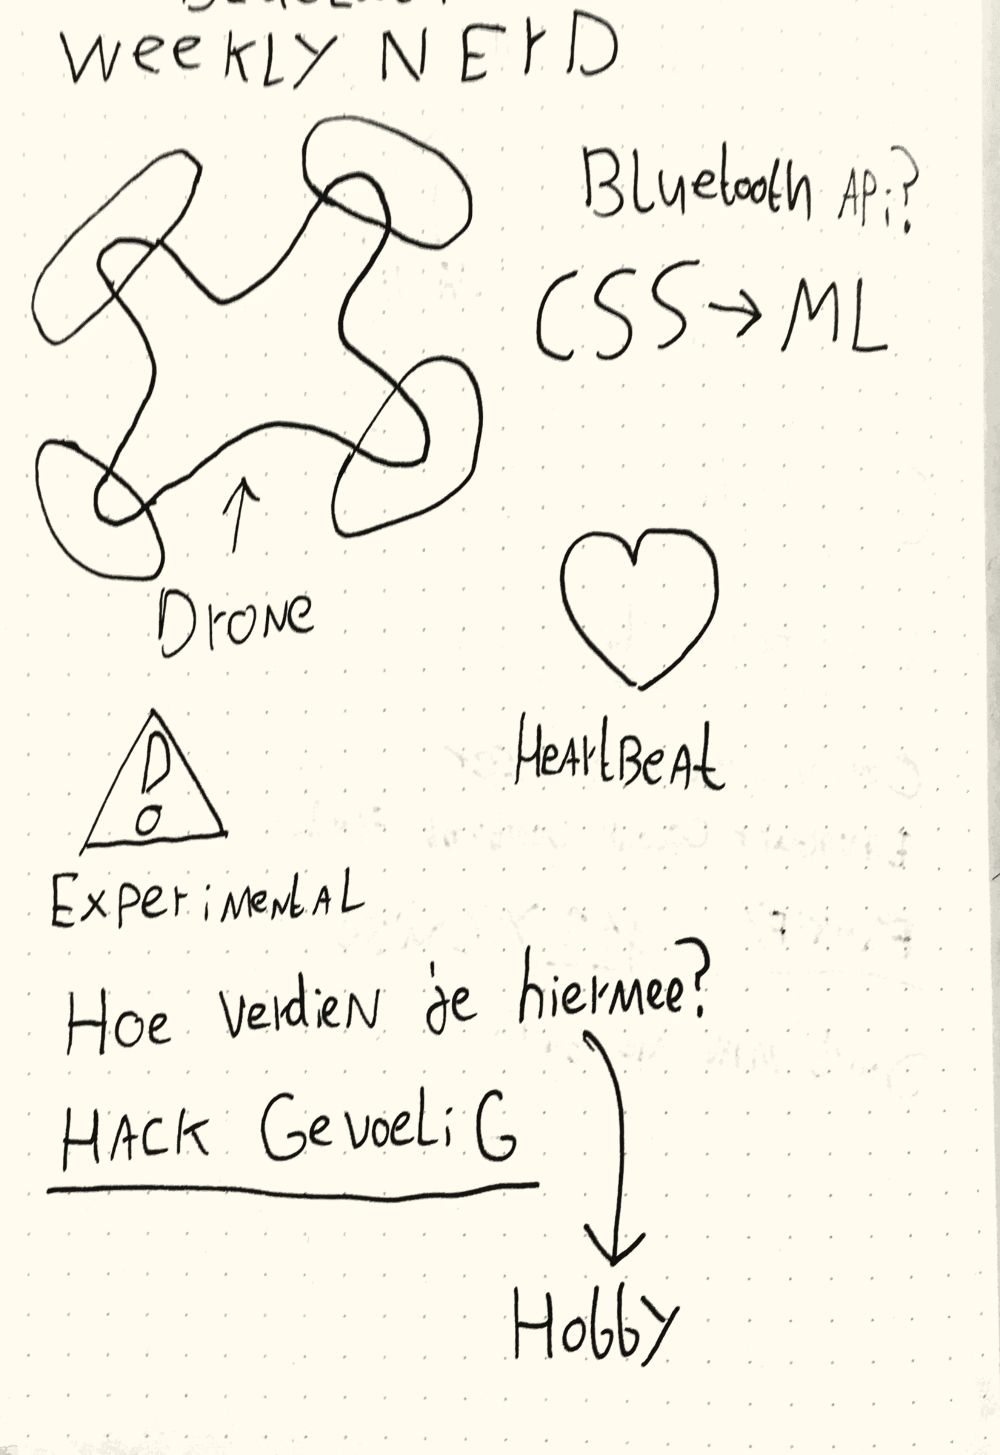 WeeKLy NErD
Bluetooth APi?
CSS → ML
Drone
HeartBeat
ExperiMentAL
Hoe verdien je hiermee?
HACK GevoeliG
Hobby